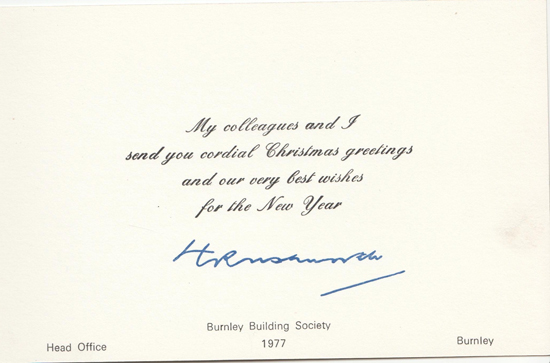 My colleagues and I
send you cordial Christmas greetings
and our very best wishes
for the New Year
Burnley Building Society
Head Office 1977 Burnley